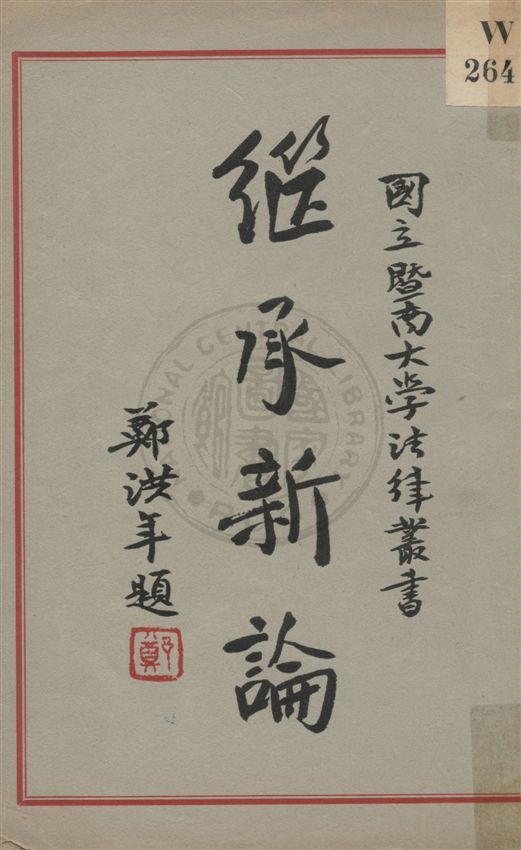 國立暨南大学法律叢書
繼承新論
鄭洪年題
鄭
W
264
NATIONAL CENTRAL LIBRARY